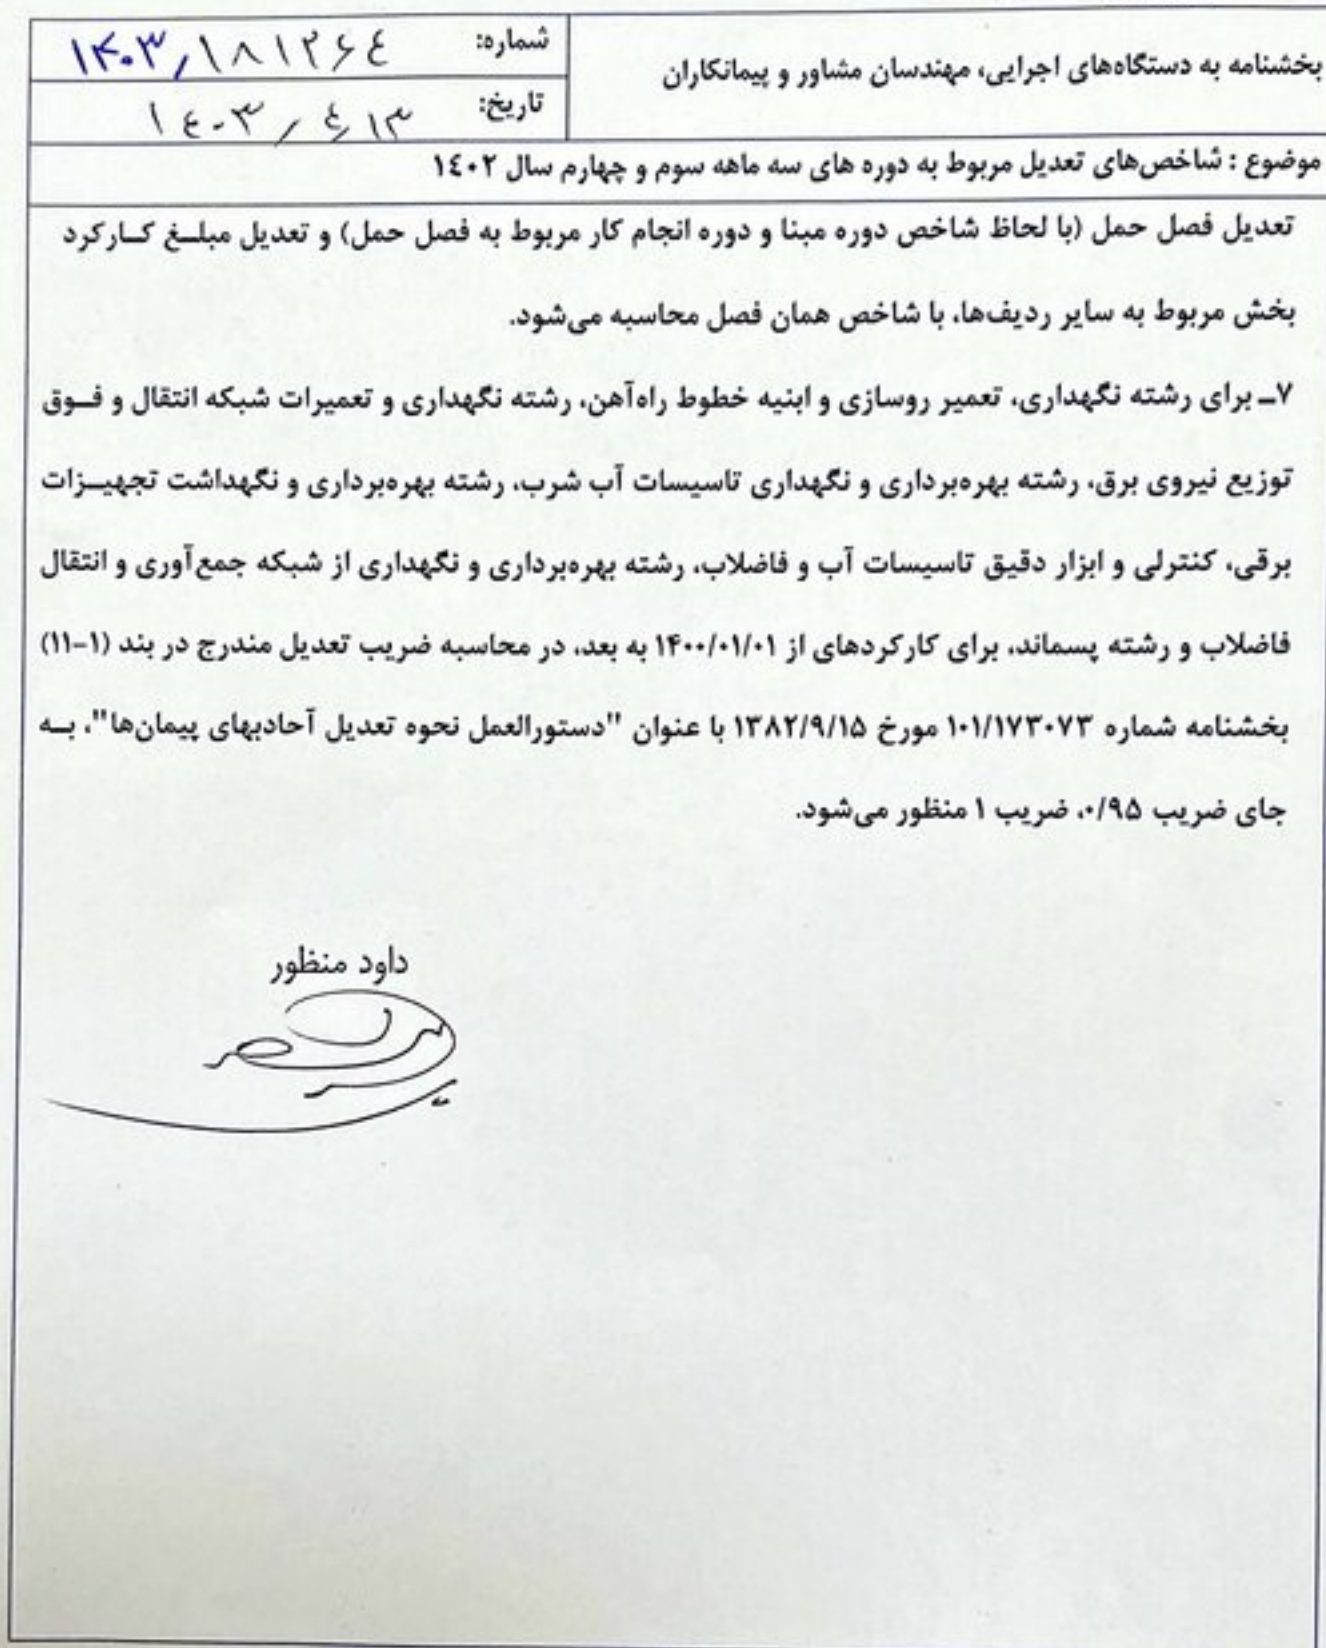 بخشنامه به دستگاه‌های اجرایی، مهندسان مشاور و پیمانکاران
شماره: ۱۴۰۳/۱۸۱۲۶۴
تاریخ: ۱۴۰۳/۴/۱۳
موضوع : شاخص‌های تعدیل مربوط به دوره های سه ماهه سوم و چهارم سال ۱۴۰۲
تعدیل فصل حمل (با لحاظ شاخص دوره مبنا و دوره انجام کار مربوط به فصل حمل) و تعدیل مبلـغ کـارکرد
بخش مربوط به سایر ردیف‌ها، با شاخص همان فصل محاسبه می‌شود.
۷ـ برای رشته نگهداری، تعمیر روسازی و ابنیه خطوط راه‌آهن، رشته نگهداری و تعمیرات شبکه انتقال و فـوق
توزیع نیروی برق، رشته بهره‌برداری و نگهداری تاسیسات آب شرب، رشته بهره‌برداری و نگهداشت تجهیـزات
برقی، کنترلی و ابزار دقیق تاسیسات آب و فاضلاب، رشته بهره‌برداری و نگهداری از شبکه جمع‌آوری و انتقال
فاضلاب و رشته پسماند، برای کارکردهای از ۱۴۰۰/۰۱/۰۱ به بعد، در محاسبه ضریب تعدیل مندرج در بند (۱-۱۱)
بخشنامه شماره ۱۰۱/۱۷۳۰۷۳ مورخ ۱۳۸۲/۹/۱۵ با عنوان "دستورالعمل نحوه تعدیل آحادبهای پیمان‌ها"، بـه
جای ضریب ۰/۹۵، ضریب ۱ منظور می‌شود.
داود منظور